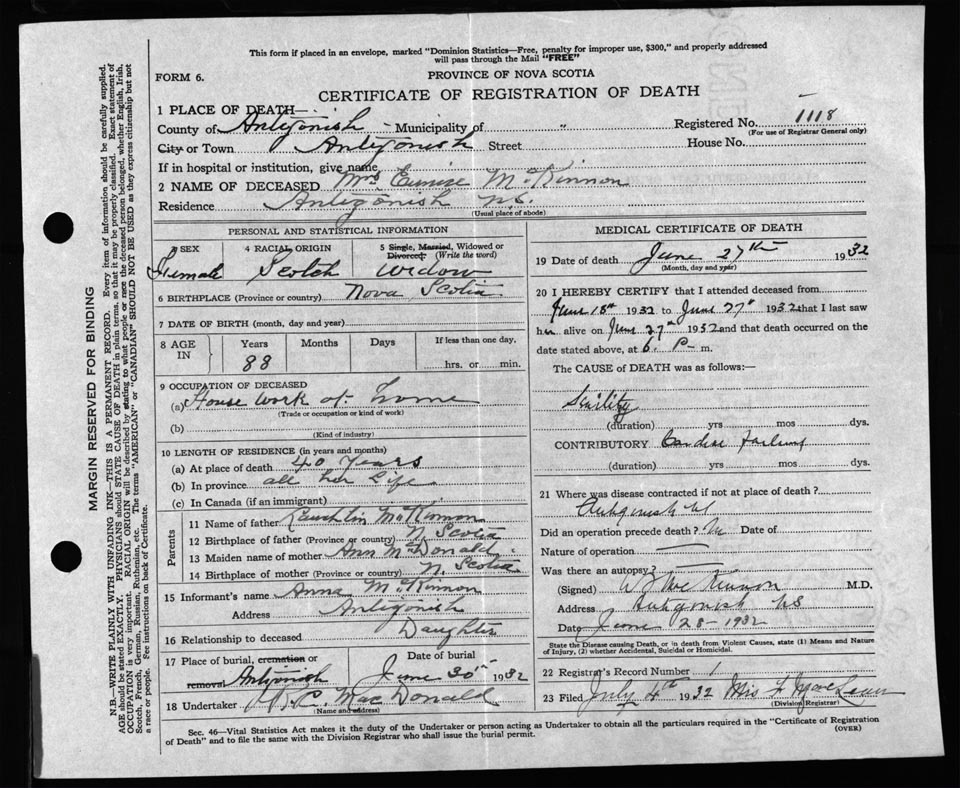 This form if placed in an envelope, marked "Dominion Statistics—Free, penalty for improper use, $300," and properly addressed
will pass through the Mail "FREE"
FORM 6.
PROVINCE OF NOVA SCOTIA
CERTIFICATE OF REGISTRATION OF DEATH
1 PLACE OF DEATH—
County of Antigonish Municipality of " Registered No. 1118
(For use of Registrar General only)
City or Town Antigonish Street House No.
If in hospital or institution, give name
2 NAME OF DECEASED Mrs Eunice McKinnon
Residence Antigonish N.S.
(Usual place of abode)
PERSONAL AND STATISTICAL INFORMATION
3 SEX 4 RACIAL ORIGIN 5 Single, Married, Widowed or
Divorced: (Write the word)
Female Scotch Widow
6 BIRTHPLACE (Province or country) Nova Scotia
7 DATE OF BIRTH (month, day and year)
8 AGE IN Years Months Days If less than one day,
88 hrs. or min.
9 OCCUPATION OF DECEASED
(a) House work at home
(Trade or occupation or kind of work)
(b)
(Kind of industry)
10 LENGTH OF RESIDENCE (in years and months)
(a) At place of death 40 years
(b) In province all her life
(c) In Canada (if an immigrant)
Parents
11 Name of father Lauchlin McKinnon
12 Birthplace of father (Province or country) N. Scotia
13 Maiden name of mother Ann McDonald
14 Birthplace of mother (Province or country) N. Scotia
15 Informant's name Anna McKinnon
Address Antigonish
16 Relationship to deceased Daughter
17 Place of burial, cremation or removal Date of burial
Antigonish June 30 1932
18 Undertaker MacDonald
(Name and address)
MEDICAL CERTIFICATE OF DEATH
19 Date of death June 27th 1932
(Month, day and year)
20 I HEREBY CERTIFY that I attended deceased from
June 18th 1932 to June 27th 1932 that I last saw
her alive on June 27th 1932 and that death occurred on the
date stated above, at 6. P m.
The CAUSE of DEATH was as follows:—
Senility
(duration) yrs mos dys.
CONTRIBUTORY Cardiac
(duration) yrs mos dys.
21 Where was disease contracted if not at place of death?
Antigonish NS
Did an operation precede death? Date of
Nature of operation
Was there an autopsy?
(Signed) M.D.
Address Antigonish NS
Date June 28-1932
State the Disease causing Death, or in death from Violent Causes, state (1) Means and Nature
of Injury, (2) whether Accidental, Suicidal or Homicidal.
22 Registrar's Record Number 1
23 Filed July 4th 1932 Miss
(Division Registrar)
Sec. 46—Vital Statistics Act makes it the duty of the Undertaker or person acting as Undertaker to obtain all the particulars required in the "Certificate of Registration
of Death" and to file the same with the Division Registrar who shall issue the burial permit. (OVER)
MARGIN RESERVED FOR BINDING
N.B.—WRITE PLAINLY WITH UNFADING INK—THIS IS A PERMANENT RECORD. Every item of information should be carefully supplied.
AGE should be stated EXACTLY. PHYSICIANS should STATE CAUSE OF DEATH in plain terms, so that it may be properly classified. Exact statement of
OCCUPATION is very important. RACIAL ORIGIN will be described by stating to what people or race the deceased person belonged, whether English, Irish,
Scotch, French, German, Russian, Ruthenian, etc. The terms "AMERICAN" or "CANADIAN" SHOULD NOT BE USED as they express citizenship but not
a race or people. See instructions on back of Certificate.